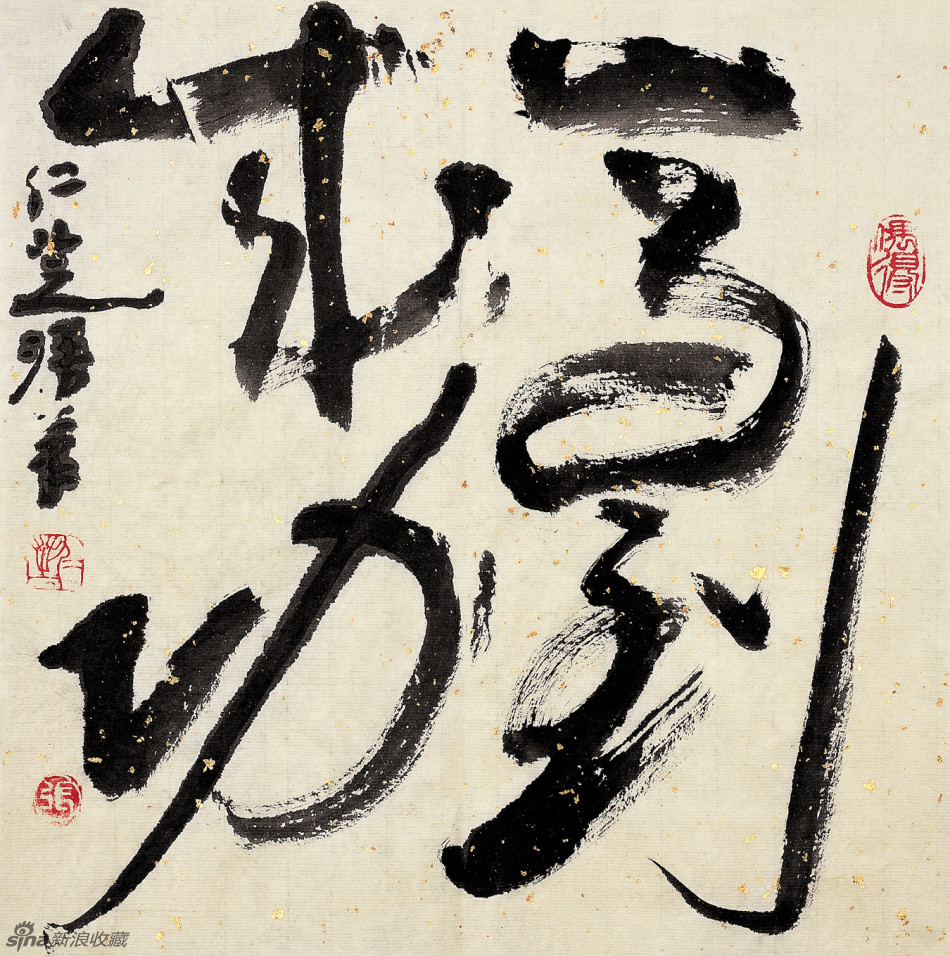 馬到
成功
仁芝
sina新浪收藏